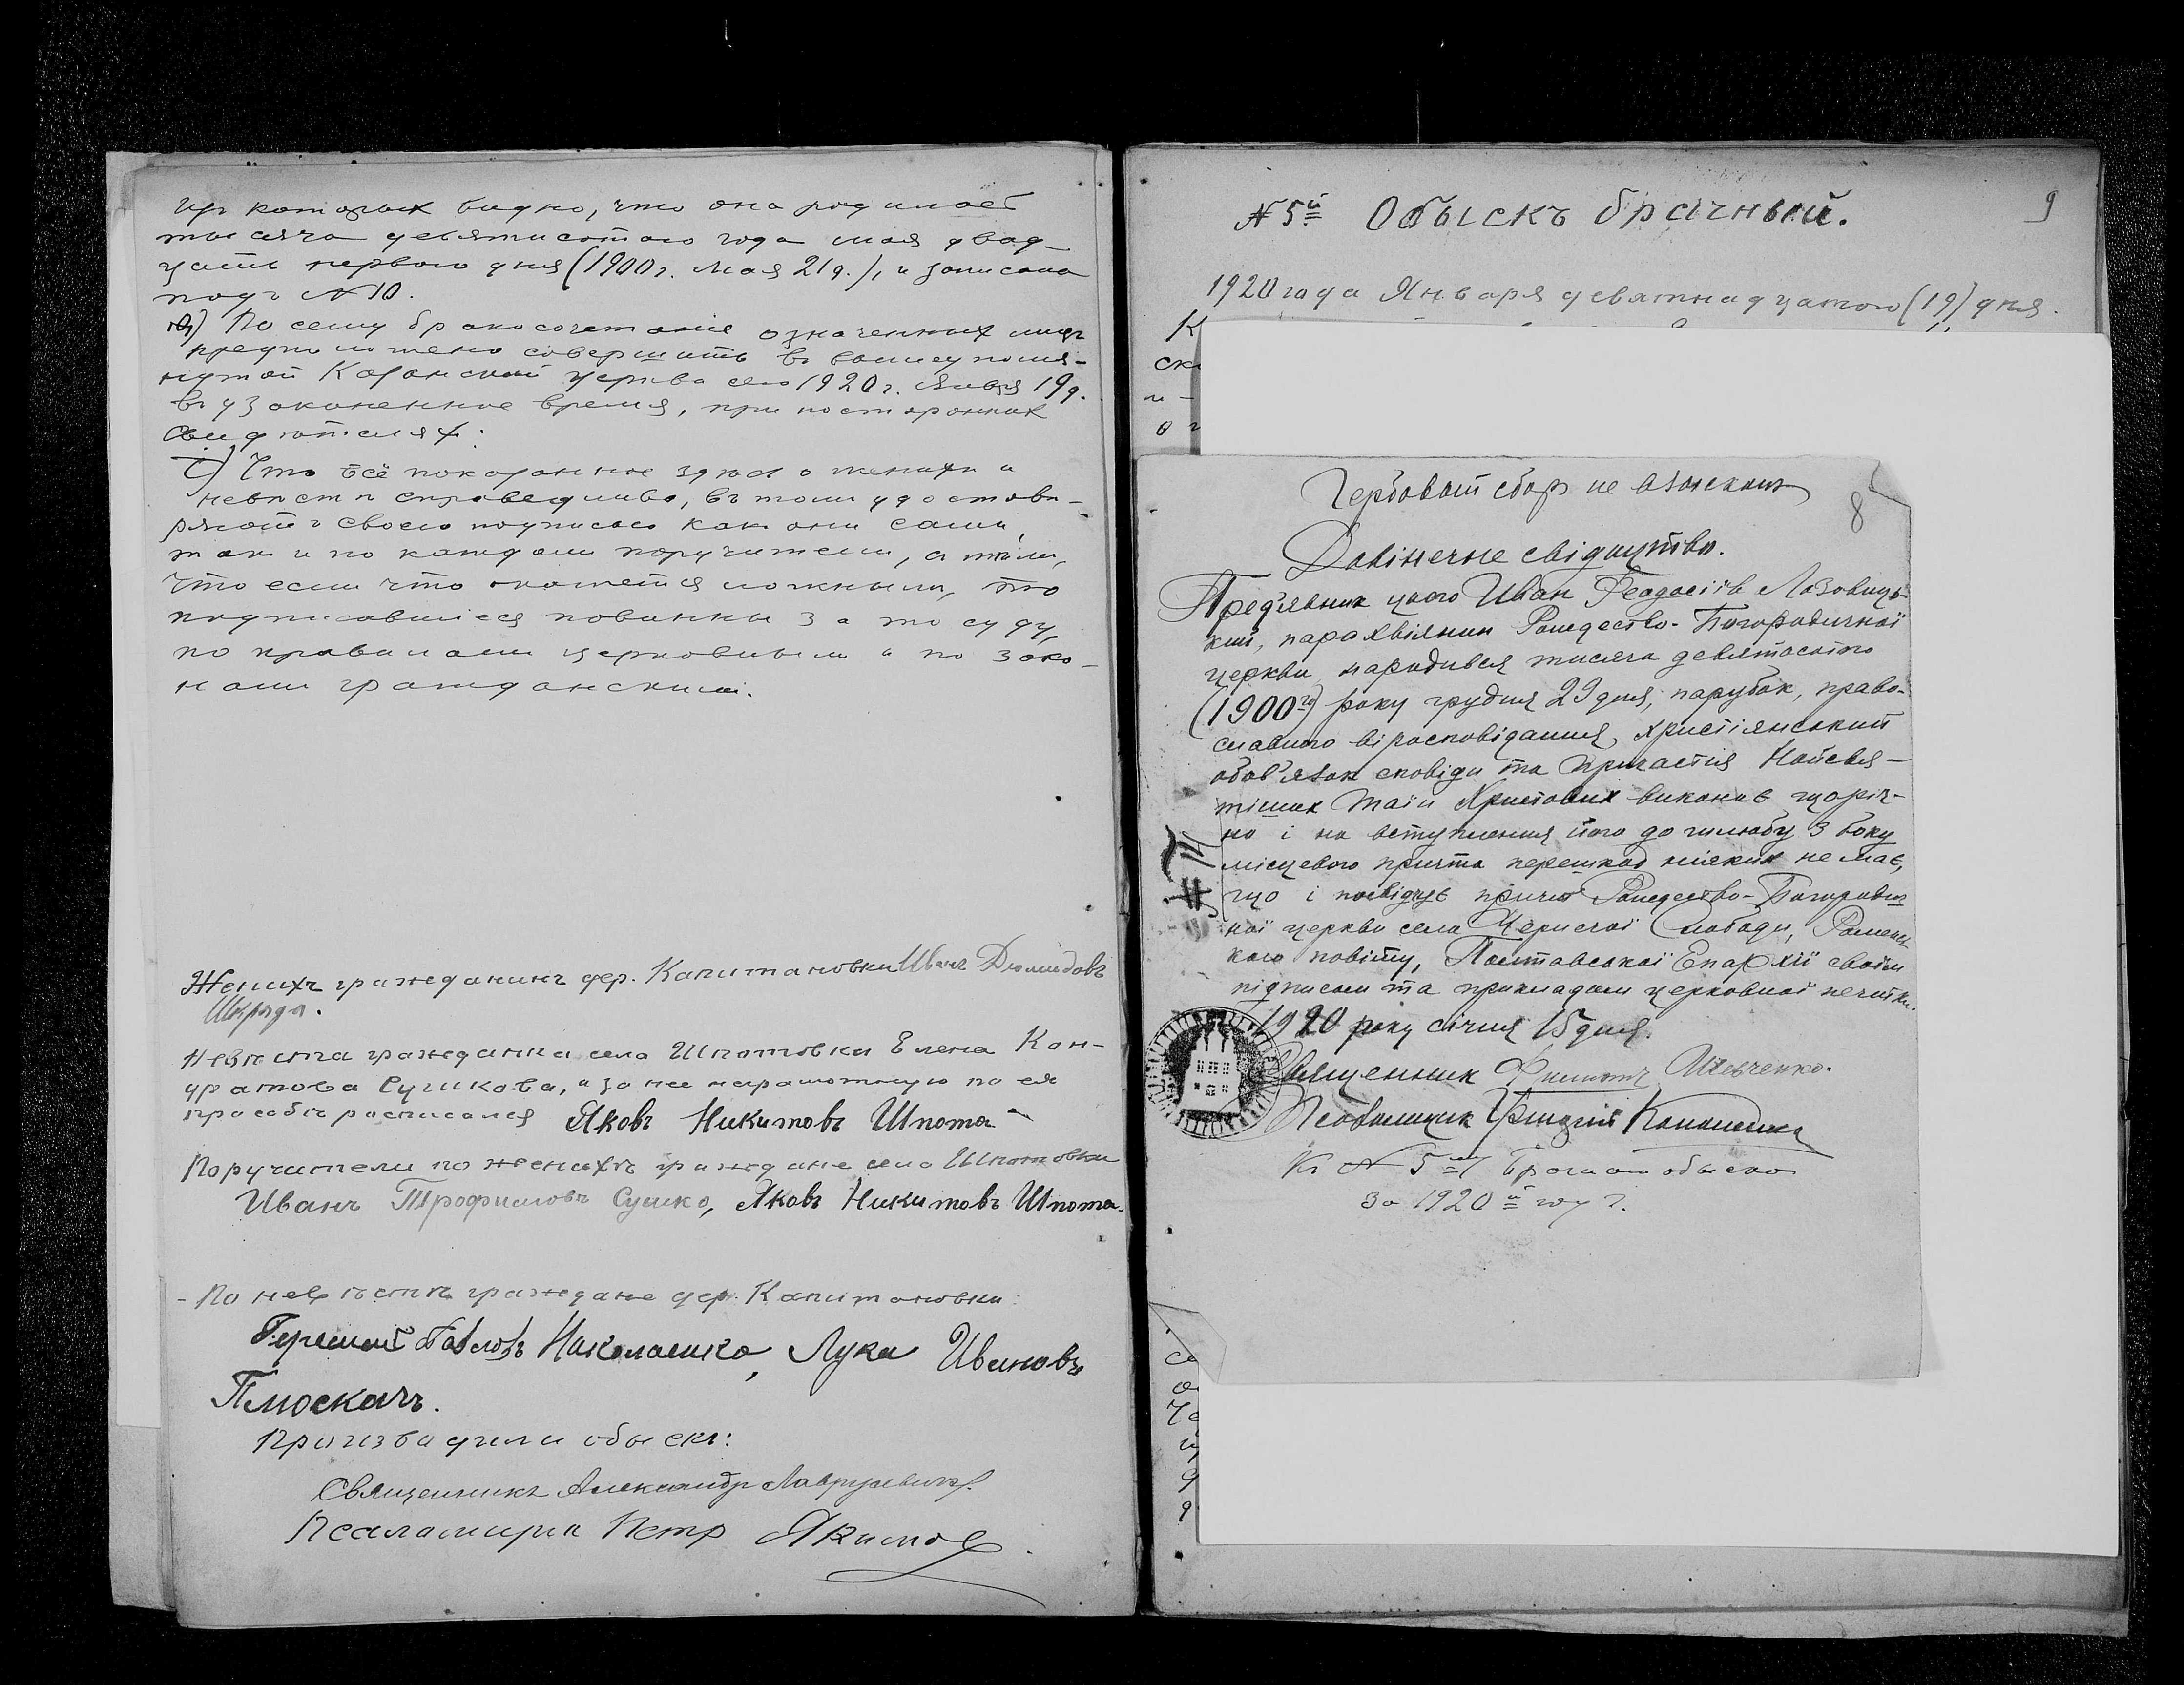 изъ которых видно, что она родилась
тысяча девятисотого года мая двад-
цать первого дня (1900 г. мая 21 д.), и записана
подъ № 10.
По сему бракосочетание означенных лицъ
предположено совершить въ вышеупомя-
нутой Казанской церкви сего 1920 г. Января 19 д.
въ узаконенное время, при посторонних
свидѣтелях:
Что всё показанное здѣсь о женихѣ и
невѣстѣ справедливо, въ томъ удостовѣ-
ряютъ своею подписью как они сами,
так и по каждом поручители, с тѣмъ,
что если что окажется ложным, то
подписавшиеся повинны за то суду
по правилам церковным и по зако-
нам гражданским.
Женихъ гражданинъ дер. Капитановки Иванъ Дюмидовъ
Шкряда.
Невѣста гражданка села Шпотовки Елена Кон-
дратова Сушкова, и за нее неграмотную по ея
просьбѣ расписался Яковъ Никитовъ Шпота
Поручители по женихѣ граждане села Шпотовки
Иванъ Трофимовъ Сушко, Яковъ Никитовъ Шпота.
- По невѣстѣ граждане дер. Капитановки:
Павловъ Николаенко, Лука Ивановъ
Плоскачъ.
Производили обыскъ:
Священникъ Александр
Псаломщик Петр Якимов
№ 5й Обыскъ брачный. 9
1920 года Января девятнадцатого (19) дня.
Гербовый сбор не взыскан
8
Довінечне свідоцтво.
Пред'явник цього Иван Феодосіїв Лазовиць-
кий, парахвіянин Рождество-Богородичної
церкви народився тисяча девятьсотого
(1900го) року грудня 29 дня, парубок, право-
славного віросповідання, християнський
обов'язок сповіди та причастія Найсвя-
тіших Таїн Христових виконує щоріч-
но і на вступлення його до шлюбу з боку
місцевого причта перешкод ніяких не має,
що і посвідчує причт Рождество-Богородич
ної церкви села Чернечої Слободи, Роменсь
кого повіту, Полтавської Епархії своїм
підписом та прикладом церковної печатки.
1920 року січня 15 дня.
№ 11
Священник Филиппъ Шевченко.
Псаломщик Григорій
Къ № 5му брачном обыско
за 1920й годъ.